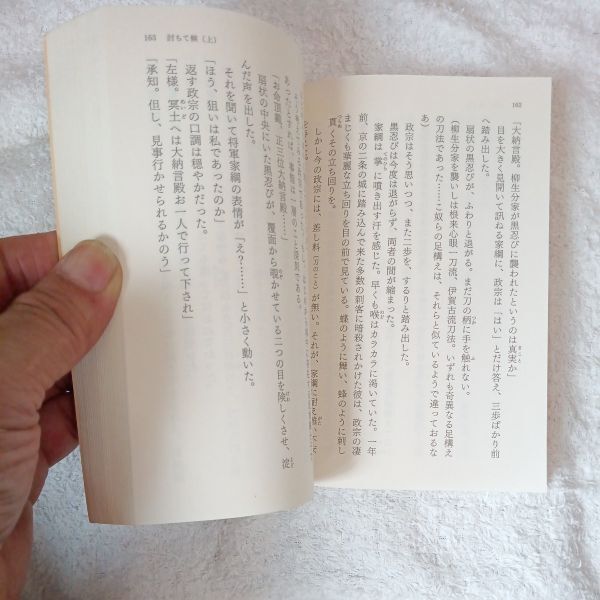 162
「大納言殿。柳生分家が黒忍びに襲われたというのは真実か」
目を大きく見開いて訊ねる家綱に、政宗は「はい」とだけ答え、三歩ばかり前
へ踏み出した。
扇状の黒忍びが、ふわりと退がる。まだ刀の柄に手を触れない。
（柳生分家を襲いしは根来心眼一刀流、伊賀古流刀法。いずれも奇異なる足構え
の刀法であった……こ奴らの足構えは、それらと似ているようで違っておるな
あ）
政宗はそう思いつつ、また二歩を、するりと踏み出した。
黒忍びは今度は退がらず、両者の間が縮まった。
家綱は掌に噴き出す汗を感じた。早くも喉はカラカラに渇いていた。一年
前、京の二条の城に踏み込んで来た多数の刺客に暗殺されかけた彼は、政宗の凄
まじくも華麗な立ち回りを目の前で見ている。蝶のように舞い、蜂のように刺し
貫くその立ち回りを。
しかし今の政宗には、差し料（刀のこと）が無い。それが、家綱に
163 討ちて候（上）
「お命頂戴、正三位大納言殿……」
扇状の中央にいた黒忍びが、覆面から覗かせている二つの目を険しくさせ、淀
んだ声を出した。
それを聞いて将軍家綱の表情が「え？……」と小さく動いた。
「ほう、狙いは私であったのか」
返す政宗の口調は穏やかだった。
「左様。冥土へは大納言殿お一人で行って下され」
「承知。但し、見事行かせられるかのう」